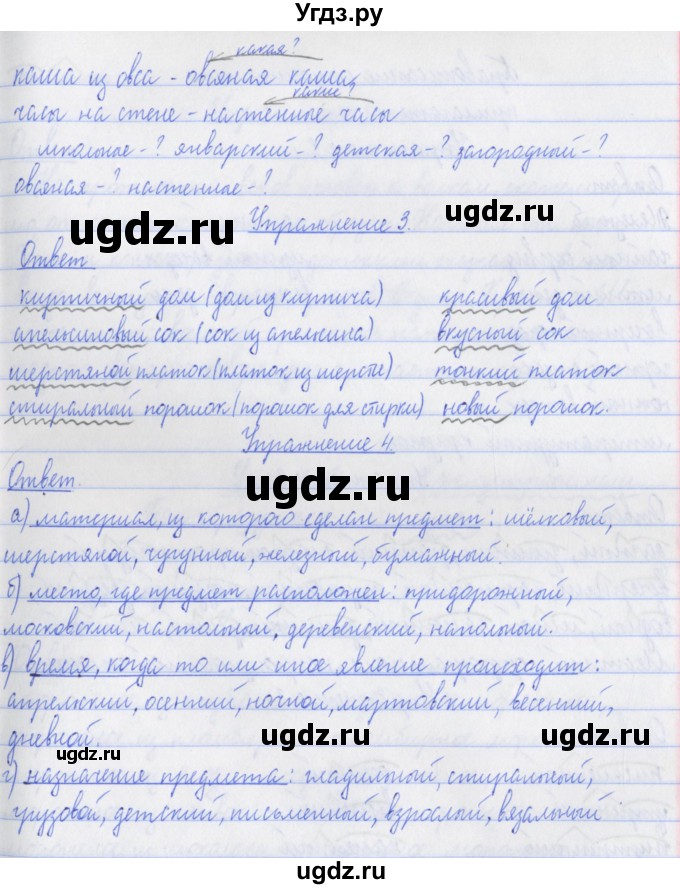 Угдз.ру
какая?
каша из овса - овсяная каша
какие?
часы на стене - настенные часы
школьные-? январский-? детская-? загородный-?
овсяная-? настенные-?
ugdz.ru
Упражнение 3.
ugdz.ru ugdz.ru
Ответ
кирпичный дом (дом из кирпича) красивый дом
апельсиновый сок (сок из апельсина) вкусный сок
шерстяной платок (платок из шерсти) тонкий платок
стиральный порошок (порошок для стирки) новый порошок.
Упражнение 4.
ugdz.ru
Ответ.
ugdz.ru
а) материал, из которого сделан предмет: шёлковый,
шерстяной, чугунный, железный, бумажный.
б) место, где предмет расположен: придорожный,
московский, настольный, деревенский, напольный.
в) время, когда то или иное явление происходит:
апрельский, осенний, ночной, мартовский, весенний,
дневной.
ugdz.ru ugdz.ru
г) назначение предмета: гладильный, стиральный,
грузовой, детский, письменный, взрослый, вязальный
ugdz.ru